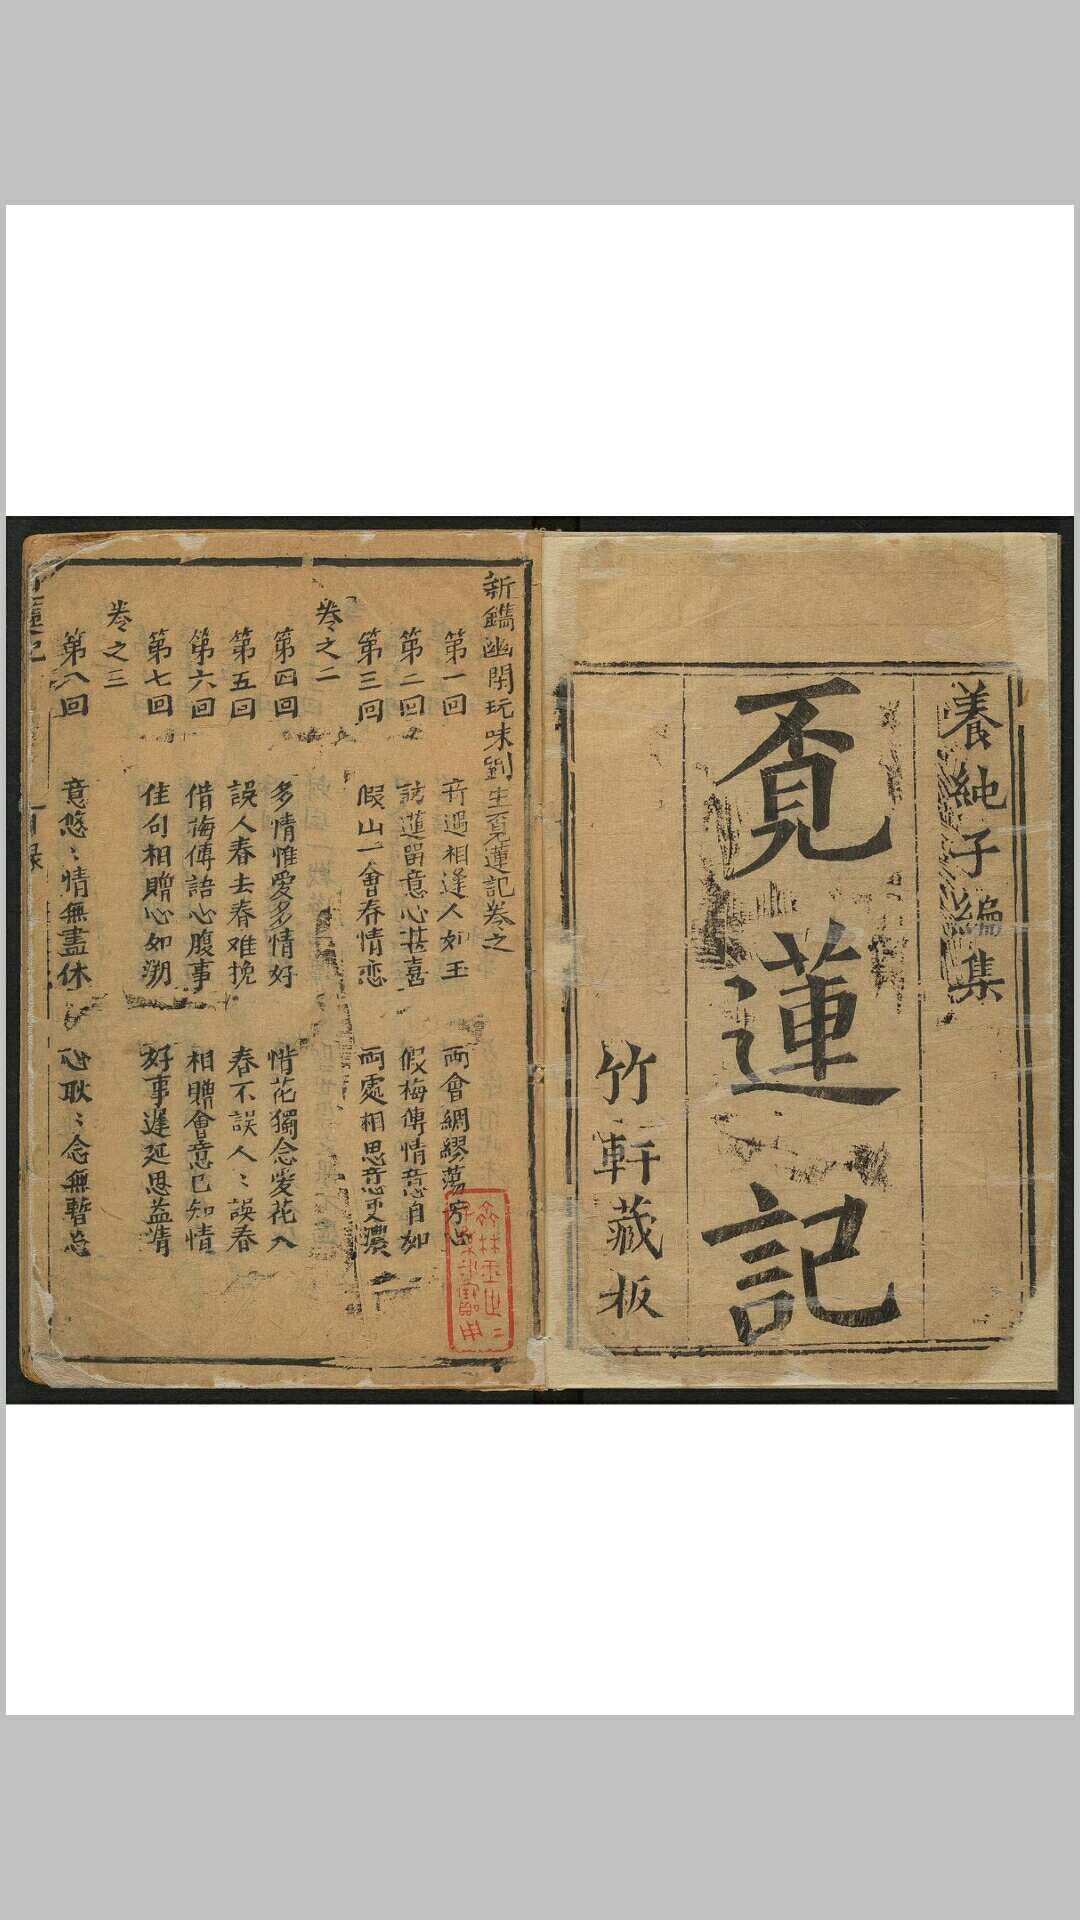 養純子編集
覔蓮記
竹軒藏板
新鐫幽閑玩味劉生覔蓮記卷之
第一回 奇遇相逢人如玉 兩會綢繆蕩芳心
第二回 訪蓮留意心甚喜 假梅傳情意自如
第三回 假山一會春情恋 兩處相思意更濃
卷之二
第四回 多情惟愛多情好 惜花獨念愛花人
第五回 誤人春去春难挽 春不誤人〻誤春
第六回 借梅傳語心腹事 相贈會意已知情
第七回 佳句相贈心如溯 好事遲延思益清
卷之三
第八回 意悠〻情無盡休 心耿〻念無暫忘
蓮記 目録